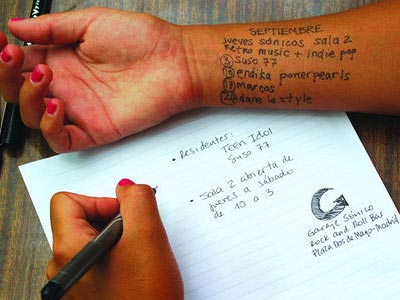 SEPTIEMBRE
jueves sónicos sala 2
Retro music + indie pop
③ Suso 77
⑩ endika powerpearls
⑰ marcos
㉔ dave le style
• Residentes:
Teen Idol
Suso 77
• Sala 2 abierta de
jueves a sábado
de 10 a 3
Garage Sónico
Rock and Roll Bar
Plaza Dos de Mayo-Madrid